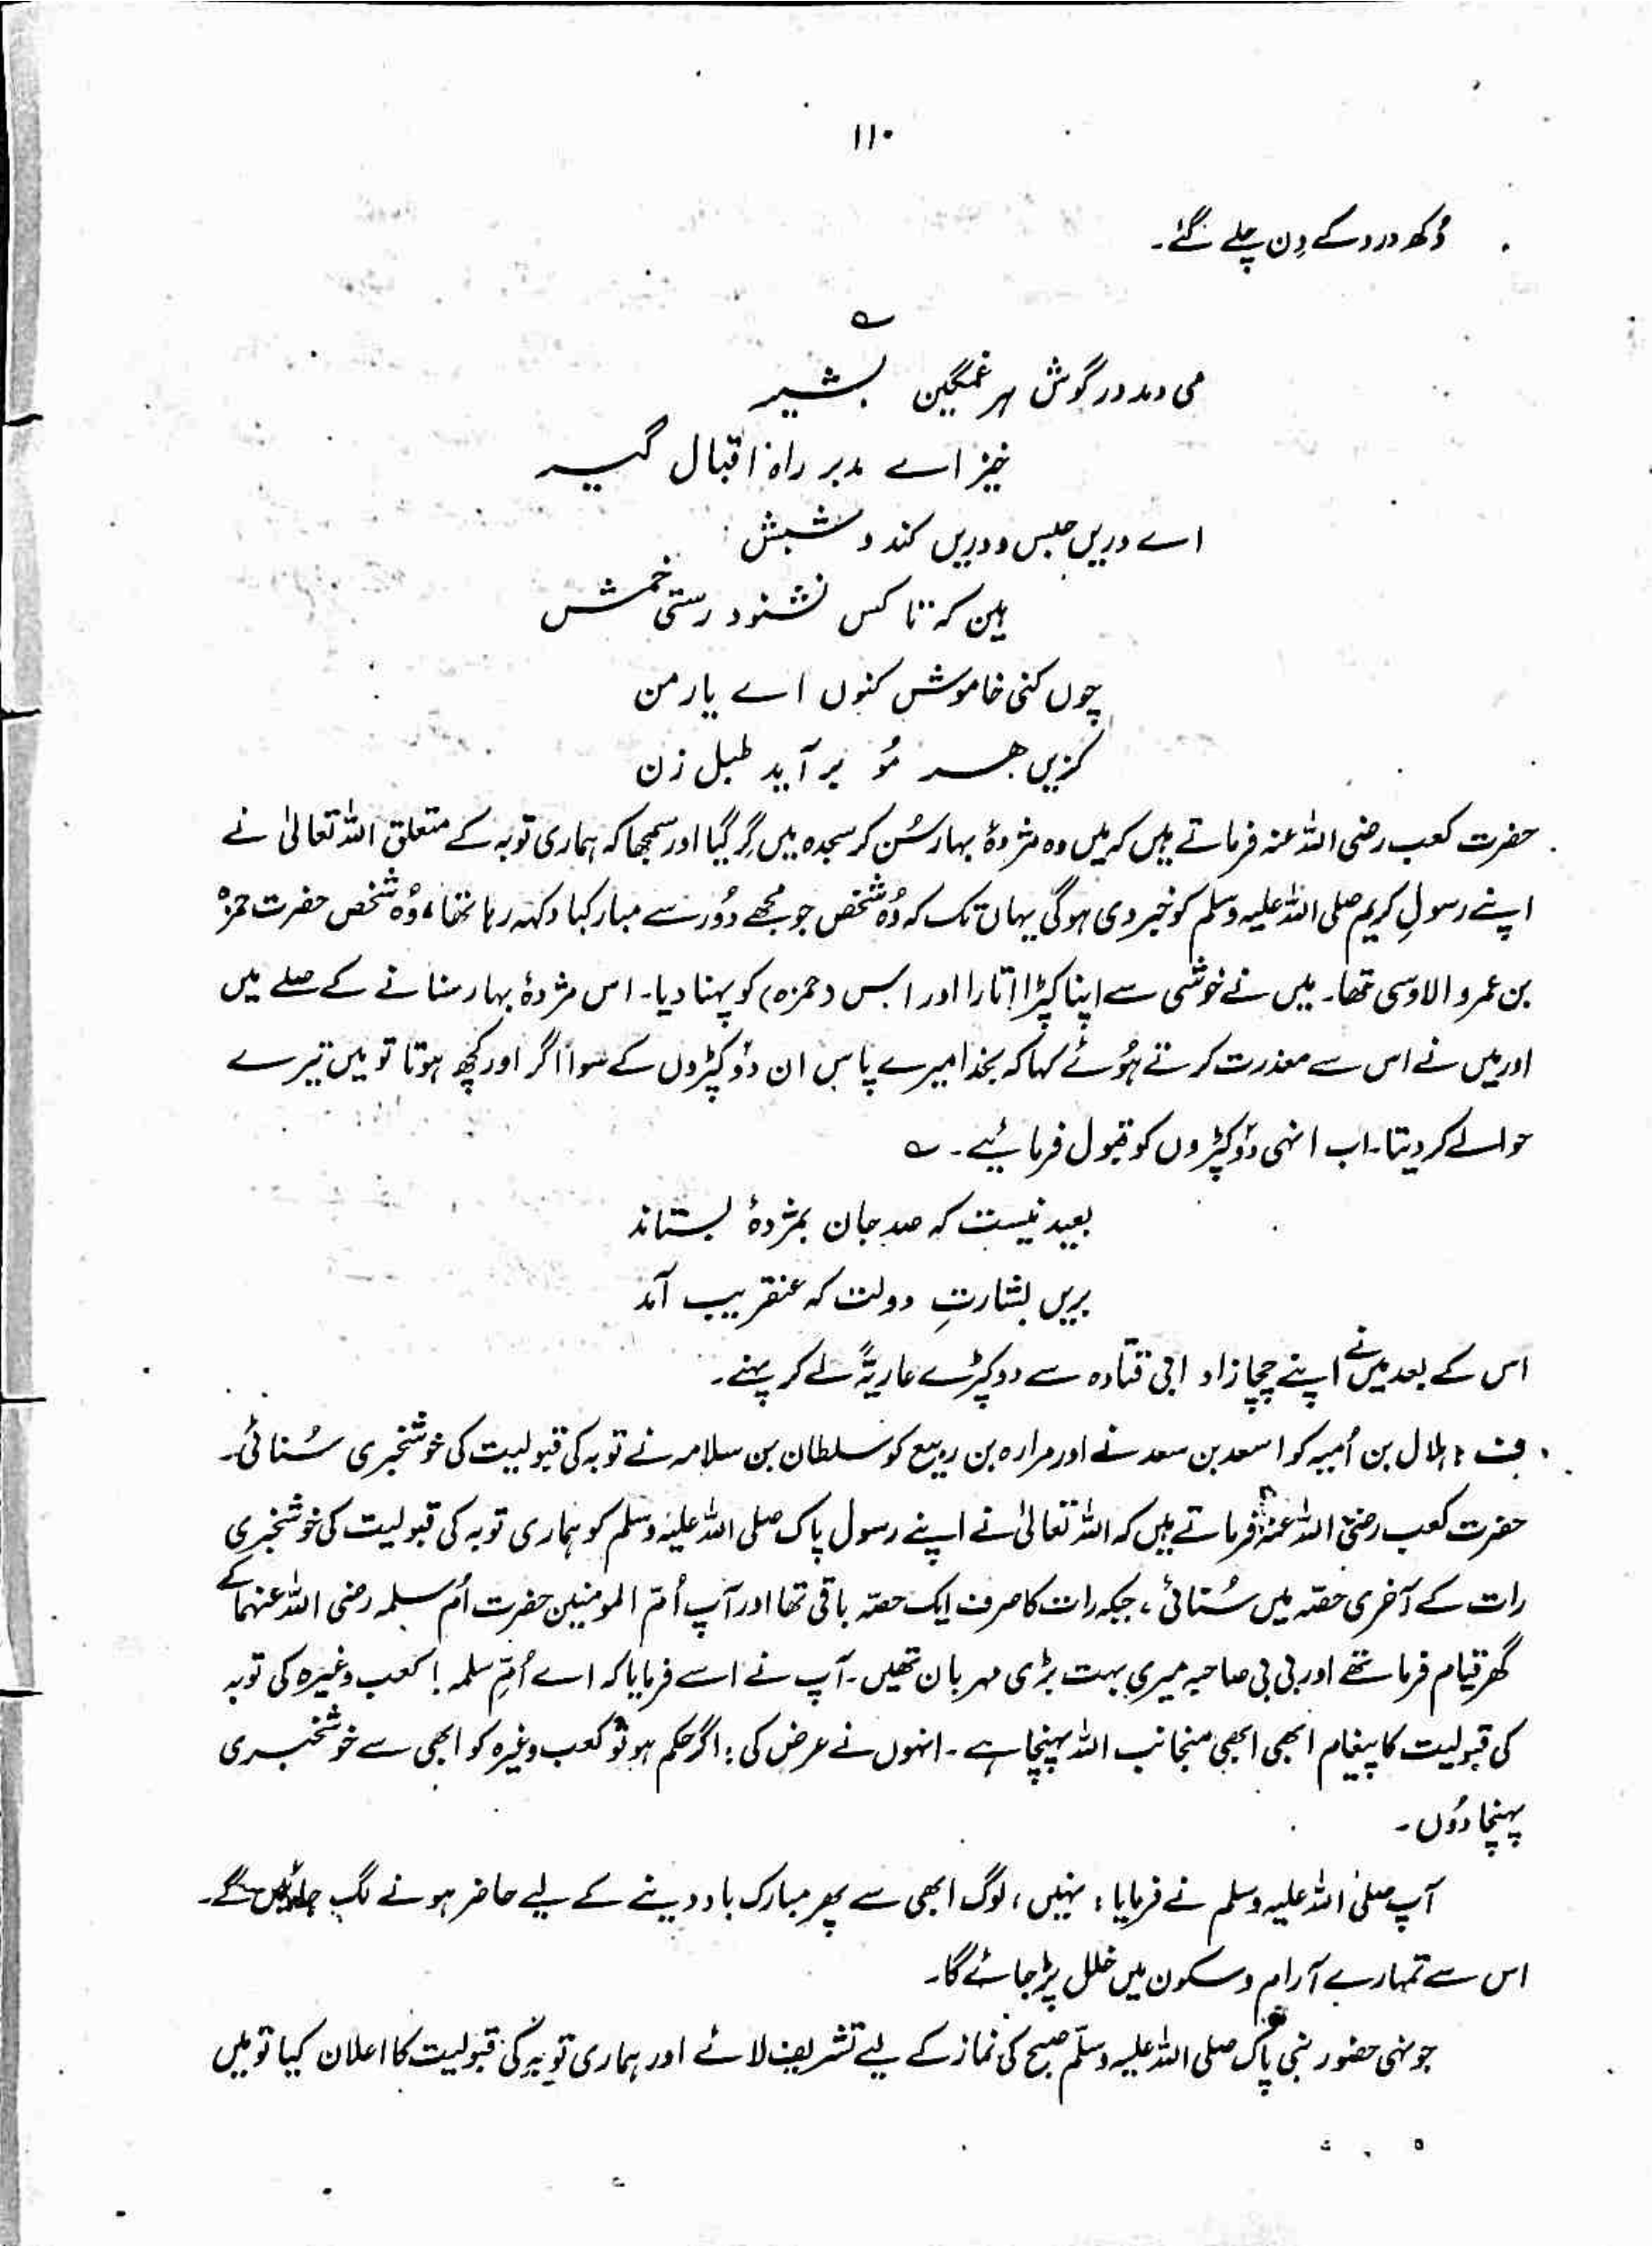 ۱۱۰
دُکھ درد کے دِن چلے گئے۔
؎
می دمد در گوش ہر غمگین بشیر
خیز اے مدبر راہ اقبال گیر
اے دریں حبس و دریں کند و شبش
ہین کہ تا کس نشنود رستی خمش
چوں کنی خاموش کنوں اے یار من
کزیں ہر مُو بر آید طبل زن
حضرت کعب رضی اللہ عنہ فرماتے ہیں کہ میں وہ مژدۂ بہار سُن کر سجدہ میں گِر گیا اور سمجھا کہ ہماری توبہ کے متعلق اللہ تعالیٰ نے
اپنے رسولِ کریم صلی اللہ علیہ وسلم کو خبر دی ہو گی یہاں تک کہ وُہ شخص جو مجھے دُور سے مبارکباد کہہ رہا تھا، وُہ شخص حضرت حمزہ
بن عمرو الاوسی تھا۔ میں نے خوشی سے اپنا کپڑا اتارا اور اس (حمزہ) کو پہنا دیا۔ اس مژدۂ بہار سنانے کے صلے میں
اور میں نے اس سے معذرت کرتے ہُوئے کہا کہ بخدا میرے پاس ان دو کپڑوں کے سوا اگر اور کچھ ہوتا تو میں تیرے
حوالے کر دیتا۔ اب انہی دو کپڑوں کو قبول فرمائیے۔ ؎
بعید نیست کہ صد جان بمژدۂ بستاند
بریں بشارتِ دولت کہ عنقریب آمد
اس کے بعد میں نے اپنے چچا زاد ابی قتادہ سے دو کپڑے عاریۃً لے کر پہنے۔
ف : ہلال بن اُمیہ کو اسعد بن سعد نے اور مرارہ بن ربیع کو سلطان بن سلامہ نے توبہ کی قبولیت کی خوشخبری سُنائی۔
حضرت کعب رضی اللہ عنہ فرماتے ہیں کہ اللہ تعالیٰ نے اپنے رسول پاک صلی اللہ علیہ وسلم کو ہماری توبہ کی قبولیت کی خوشخبری
رات کے آخری حصّہ میں سُنائی، جبکہ رات کا صرف ایک حصّہ باقی تھا اور آپ اُمّ المومنین حضرت اُم سلمہ رضی اللہ عنہما کے
گھر قیام فرما تھے اور بی بی صاحبہ میری بہت بڑی مہربان تھیں۔ آپ نے اسے فرمایا کہ اے اُمِّ سلمہ ! کعب وغیرہ کی توبہ
کی قبولیت کا پیغام ابھی ابھی منجانب اللہ پہنچا ہے۔ انہوں نے عرض کی : اگر حکم ہو تو کعب وغیرہ کو ابھی سے خوشخبری
پہنچا دُوں۔
آپ صلی اللہ علیہ وسلم نے فرمایا : نہیں، لوگ ابھی سے پھر مبارک باد دینے کے لیے حاضر ہونے لگ جائیں گے۔
اس سے تمہارے آرام و سکون میں خلل پڑ جائے گا۔
جونہی حضور نبی پاک صلی اللہ علیہ وسلّم صبح کی نماز کے لیے تشریف لائے اور ہماری توبہ کی قبولیت کا اعلان کیا تو میں